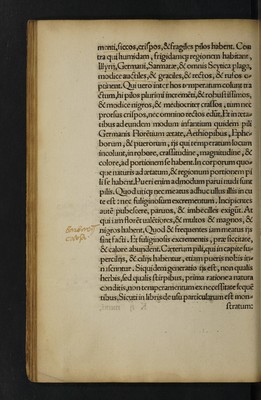 monti, siccos, crispos, & fragiles pilos habent. Con
tra qui humidam, frigidamq; regionem habitant,
Illyrij, Germani, Sarmatæ, & omnis Scytica plaga,
modice auctiles, & graciles, & rectos, & rufos
ptinent. Qui uero inter hos temperatum colunt tra
ctum, hi pilos plurimi incrementi, & robustissimos,
& modice nigros, & mediocriter crassos, tum nec
prorsus crispos, nec omnino rectos edūt. Et in ætatibus
ad eundem modum infantium quidem pili
Germanis Florētium ætate, Aethiopibus, Ephe
borum, & puerorum, ijs qui temperatum locum
incolunt, in robore, crassitudine, magnitudine, &
colore, ad portionem se habent. In corporum quoque
naturis ad ætatum, & regionum portionem pi
li se habent. Pueri enim admodum parui nudi sunt
pilis. Quod
te est: nec fuliginosum excrementum. Incipientes
autē pubescere, paruos, & imbecilles exigūt. At
qui iam florēt ualētiores, & multos & magnos, &
nigros habent. Quod & frequentes iam meatus ijs
sint facti. Et fuliginosis excrementis, præ siccitate,
& calore abundent. Cæterum pili, qui in capite su-
percilijs, & cilijs habentur, etiam pueris nobis in-
nascuntur. Siquidem generatio ijs est, non qualis
herbis, sed qualis stirpibus, prima ratione a natura
conditis, non temperamentum ex necessitate seque
tibus. Sicuti in libris de usu particularum est mon-
stratum: